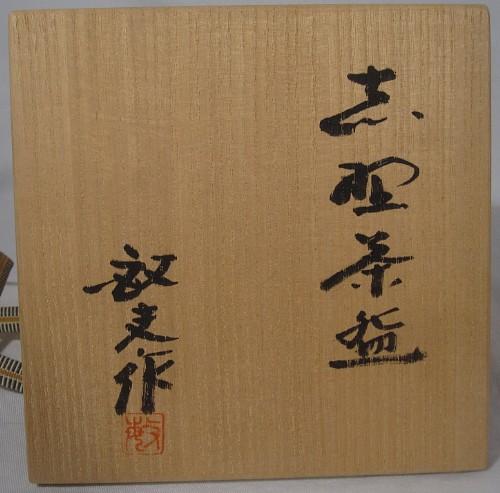 志野茶盌
敏夫作